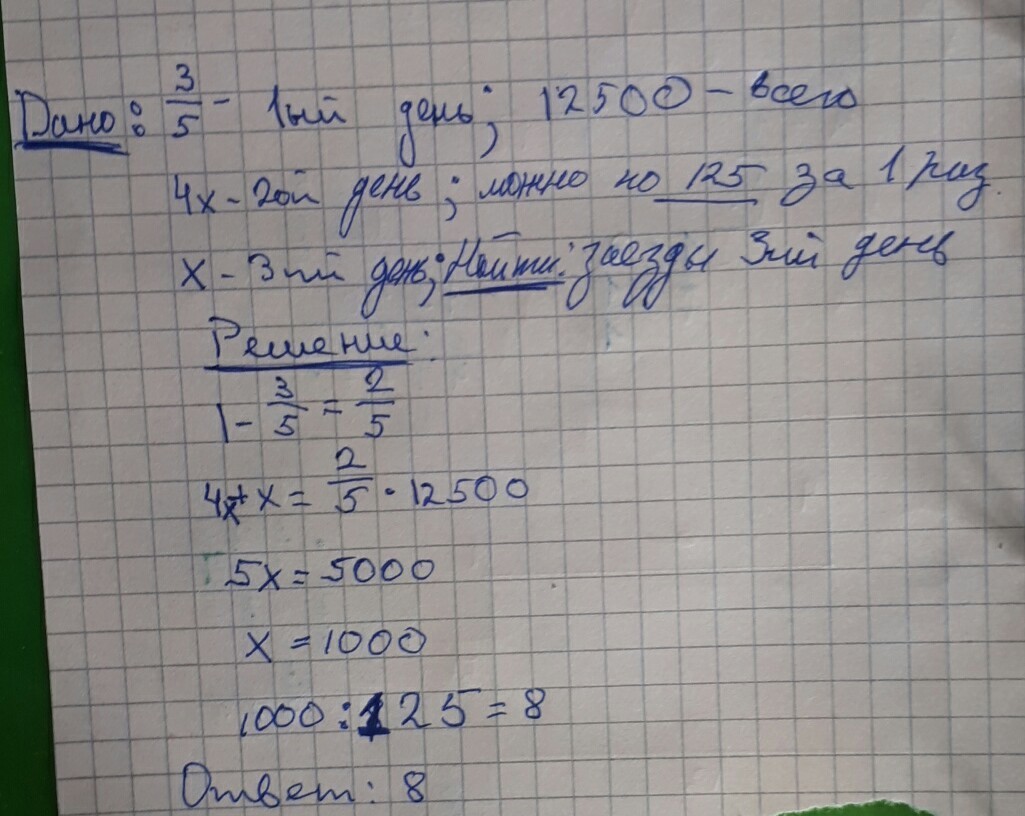 Дано: 3/5 - 1ый день; 12500 - всего
4х - 2ой день; можно по 125 за 1 раз.
х - 3ий день; Найти: заезды 3ий день
Решение:
1 - 3/5 = 2/5
4х + х = 2/5 · 12500
5х = 5000
х = 1000
1000 : 125 = 8
Ответ: 8